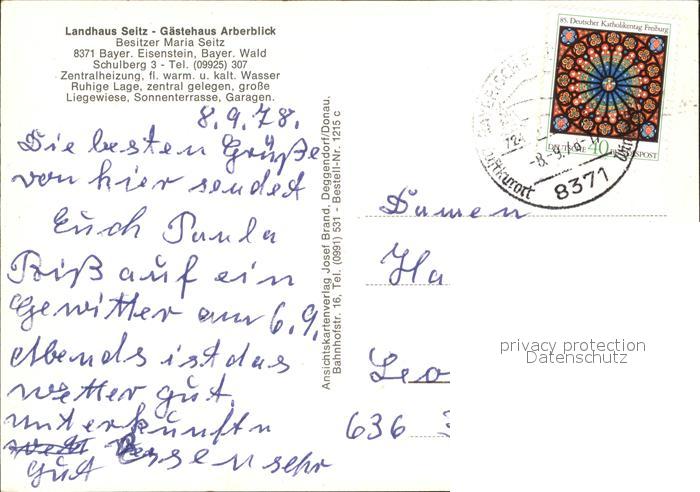 Landhaus Seitz - Gästehaus Arberblick
Besitzer Maria Seitz
8371 Bayer. Eisenstein, Bayer. Wald
Schulberg 3 - Tel. (09925) 307
Zentralheizung, fl. warm. u. kalt. Wasser
Ruhige Lage, zentral gelegen, große
Liegewiese, Sonnenterrasse, Garagen.
8.9.78.
Die besten Grüße
von hier sendet
Euch Paula
Biß auf ein
Gewitter am 6.9.
Abends ist das
wetter gut.
unterkunft
gut Essen sehr
Ansichtskartenverlag Josef Brand, Deggendorf/Donau,
Bahnhofstr. 16, Tel. (0991) 531 - Bestell-Nr. 1215 c
85. Deutscher Katholikentag Freiburg
DEUTSCHE 40 BUNDESPOST
Luftkurort
8371
Damen
Ha
Leo
636
privacy protection
Datenschutz